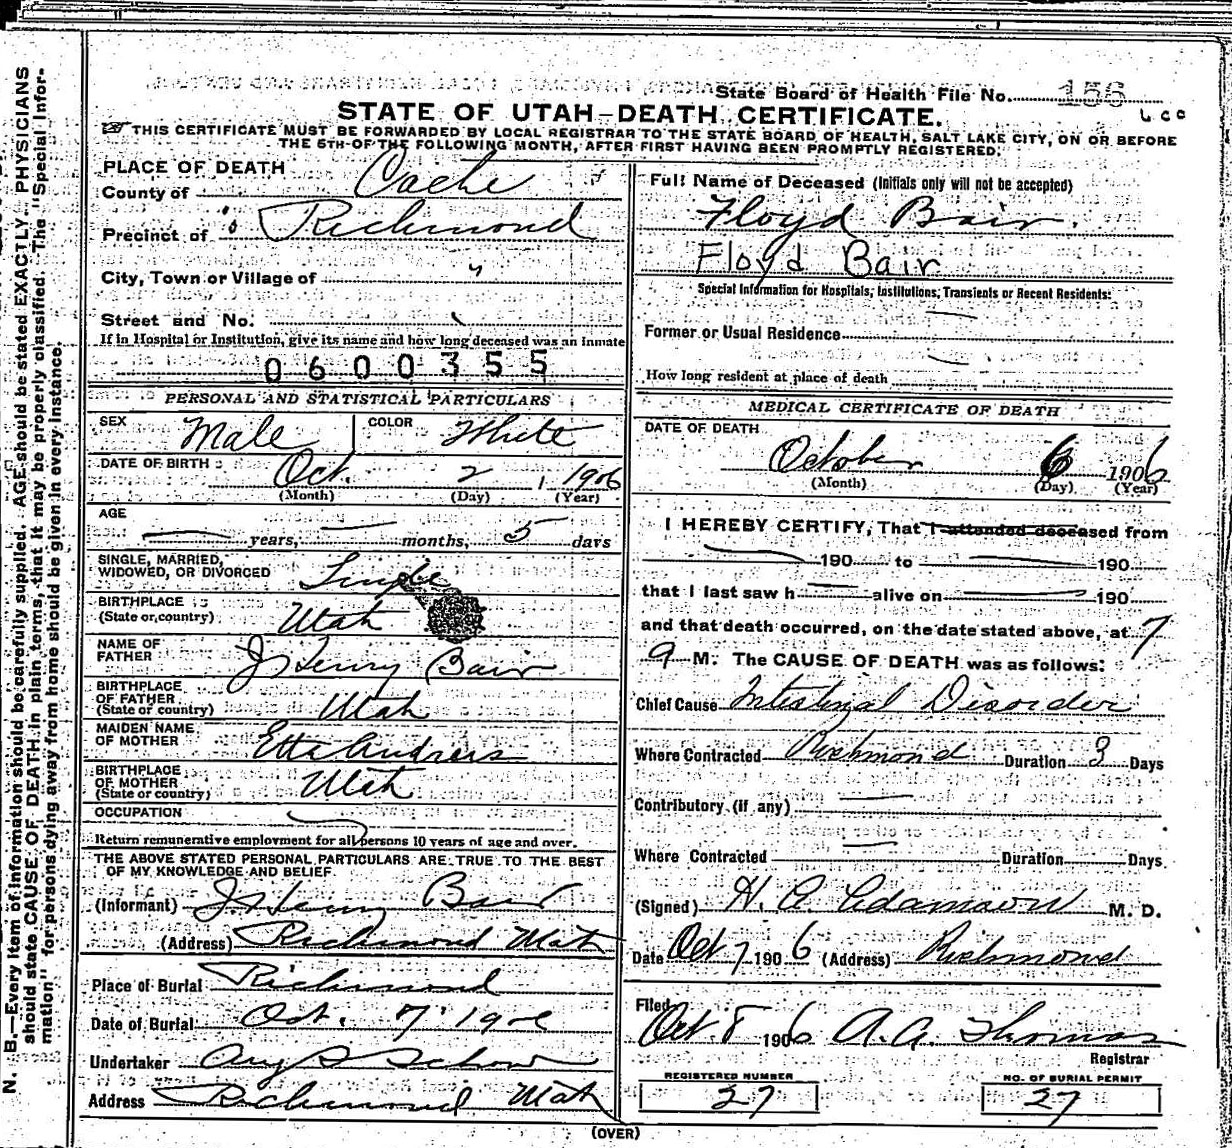 State Board of Health File No. 156
STATE OF UTAH-DEATH CERTIFICATE.
THIS CERTIFICATE MUST BE FORWARDED BY LOCAL REGISTRAR TO THE STATE BOARD OF HEALTH, SALT LAKE CITY, ON OR BEFORE
THE 5TH OF THE FOLLOWING MONTH, AFTER FIRST HAVING BEEN PROMPTLY REGISTERED.
PLACE OF DEATH
County of Cache
Precinct of Richmond
City, Town or Village of "
Street and No.
If in Hospital or Institution, give its name and how long deceased was an inmate
0600355
PERSONAL AND STATISTICAL PARTICULARS
SEX Male COLOR White
DATE OF BIRTH Oct. 2 1906
(Month) (Day) (Year)
AGE
— years, — months, 5 days
SINGLE, MARRIED,
WIDOWED, OR DIVORCED Single
BIRTHPLACE
(State or country) Utah
NAME OF
FATHER J Henry Bair
BIRTHPLACE
OF FATHER
(State or country) Utah
MAIDEN NAME
OF MOTHER Etta Andrers
BIRTHPLACE
OF MOTHER
(State or country) Utah
OCCUPATION —
Return remunerative employment for all persons 10 years of age and over.
THE ABOVE STATED PERSONAL PARTICULARS ARE TRUE TO THE BEST
OF MY KNOWLEDGE AND BELIEF.
(Informant) J Henry Bair
(Address) Richmond Utah
Place of Burial Richmond
Date of Burial Oct. 7 190
Undertaker Aug S Schow
Address Richmond Utah
Full Name of Deceased (Initials only will not be accepted)
Floyd Bair.
Floyd Bair
Special Information for Hospitals, Institutions, Transients or Recent Residents:
Former or Usual Residence —
How long resident at place of death —
MEDICAL CERTIFICATE OF DEATH
DATE OF DEATH
October 6 1906
(Month) (Day) (Year)
I HEREBY CERTIFY, That I attended deceased from
— 190 to — 190
that I last saw h — alive on — 190
and that death occurred, on the date stated above, at 7
a M. The CAUSE OF DEATH was as follows:
Chief Cause Intestinal Disorder
Where Contracted Richmond Duration 3 Days
Contributory (if any) —
Where Contracted — Duration Days
(Signed) H. A. Adamson M. D.
Date Oct 7 1906 (Address) Richmond
Filed
Oct. 8 1906 A. A. Thomas
Registrar
REGISTERED NUMBER
27
NO. OF BURIAL PERMIT
27
(OVER)
N. B.—Every item of information should be carefully supplied. AGE should be stated EXACTLY. PHYSICIANS
should state CAUSE OF DEATH in plain terms, that it may be properly classified. The "Special Infor-
mation" for persons dying away from home should be given in every instance.